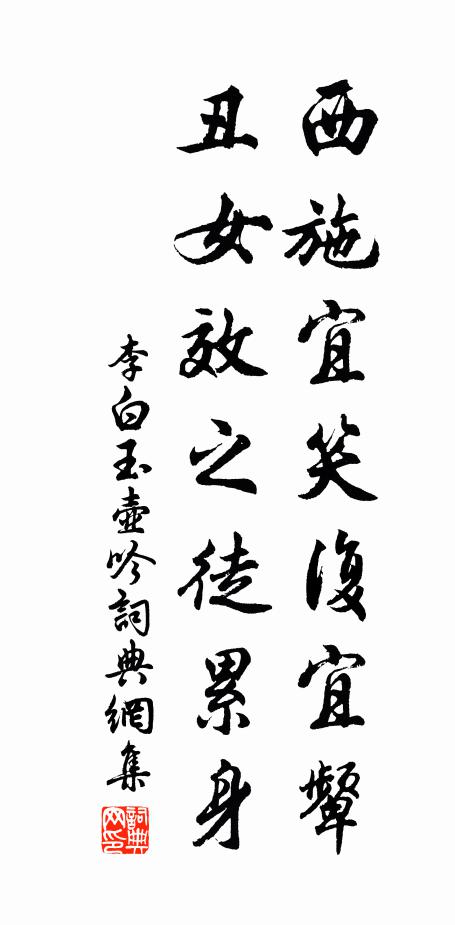 西施宜笑復宜顰
丑女效之徒累身
李白玉壺吟詞典網集
詞典網印